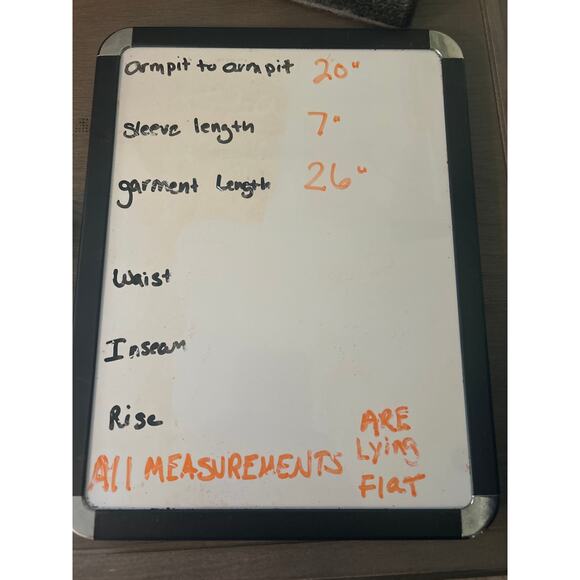 armpit to armpit 20"
sleeve length 7"
garment Length 26"
Waist
Inseam
Rise
All MEASUREMENTS ARE
Lying
Flat